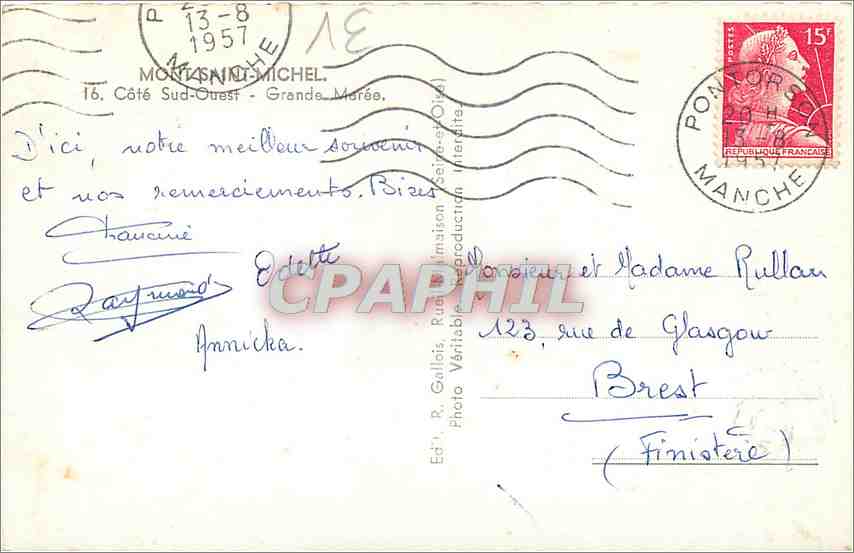 13-8
1957
MANCHE
1V3
15F
POSTES
REPUBLIQUE FRANCAISE
PONTORSON
20 H
13-8
1957
MANCHE
MONT-SAINT-MICHEL.
16. Côté Sud-Ouest - Grande Marée.
D'ici, notre meilleur souvenir
et nos remerciements. Bises
Francine
Odette
Raymond
Annicka.
Ed., R. Gallois, Rueil-Malmaison (Seine-et-Oise)
Photo Véritable Reproduction Interdite.
CPAPHIL
Monsieur et Madame Rullan
123, rue de Glasgow
Brest
(Finistère)